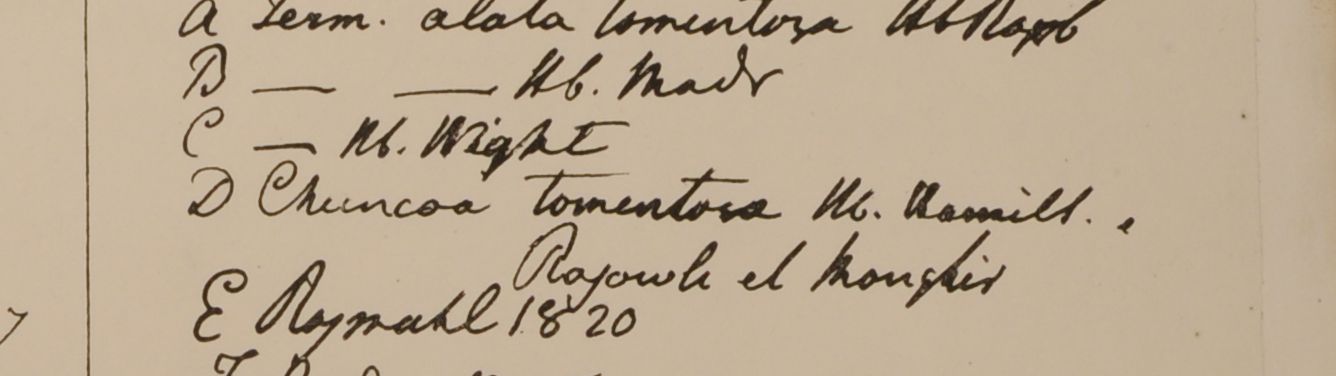 A Term. alata tomentosa Hb Roxb
B — — Hb. Madr
C — Hb. Wight
D Chuncoa tomentosa Hb. Hamilt.
Rajowli et Monghir
E Rajmahl 1820